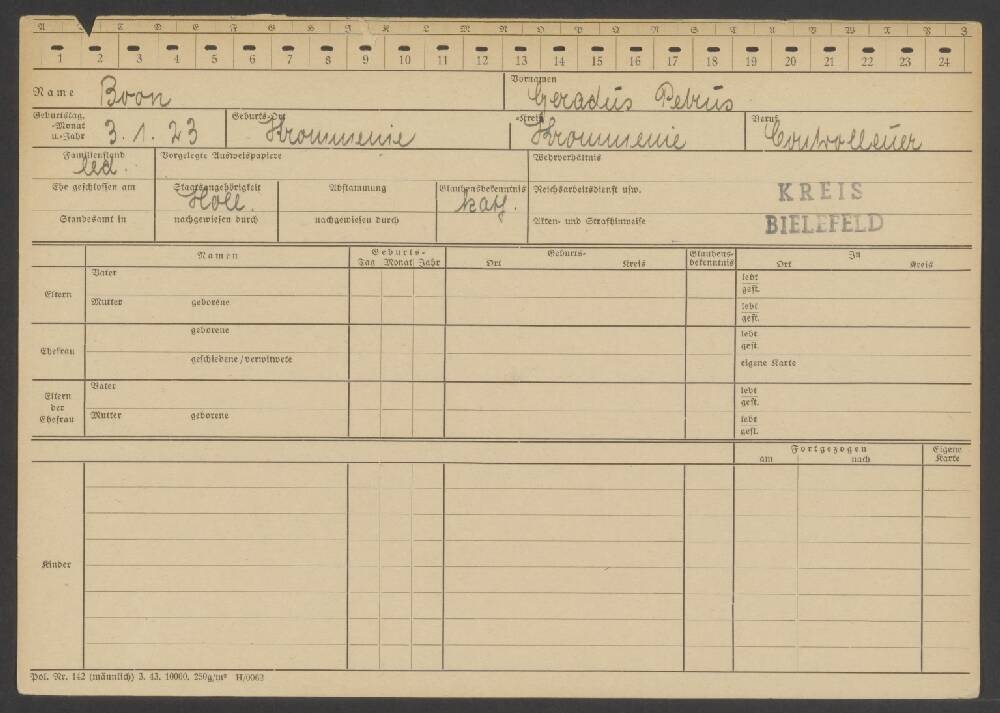 A C D E F G H I K L M N O P Q R S T U V W X Y Z
1 2 3 4 5 6 7 8 9 10 11 12 13 14 15 16 17 18 19 20 21 22 23 24
Name Boon Vornamen Geradus Petrus
Geburtstag, -Monat u. -Jahr 3.1.23 Geburts-Ort Krommenie -Kreis Krommenie Beruf Controlleuer
Familienstand led. Vorgelegte Ausweispapiere Wehrverhältnis
Ehe geschlossen am Staatsangehörigkeit Holl. Abstammung Glaubensbekenntnis kath. Reichsarbeitsdienst usw. KREIS
Standesamt in nachgewiesen durch nachgewiesen durch Akten- und Strafhinweise BIELEFELD
Namen Geburts- Geburts- Glaubens- In
Tag Monat Jahr Ort Kreis bekenntnis Ort Kreis
Eltern Vater lebt
gest.
Mutter geborene lebt
gest.
Ehefrau geborene lebt
gest.
geschiedene/verwitwete eigene Karte
Eltern der Ehefrau Vater lebt
gest.
Mutter geborene lebt
gest.
Fortgezogen Eigene
am nach Karte
Kinder
Pol. Nr. 142 (männlich) 3. 43. 10000. 250g/m² H/0062